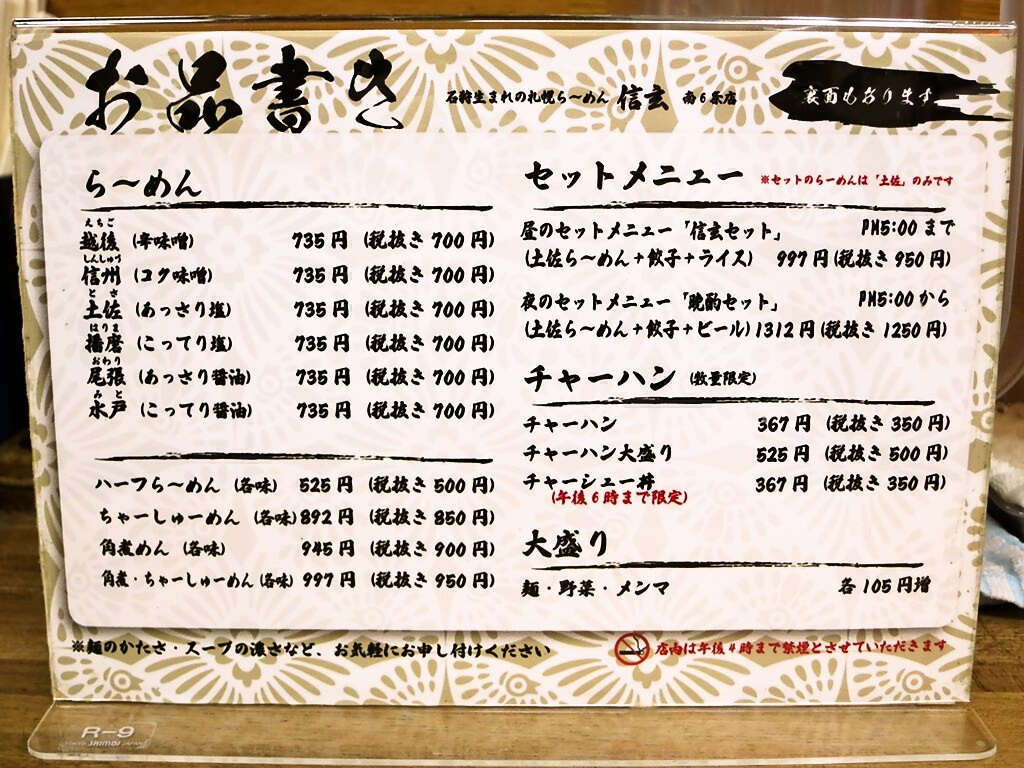 お品書き
石狩生まれの札幌ら～めん 信玄 南6条店
裏面もあります
ら～めん
えちご
越後 (辛味噌) 735円 (税抜き 700円)
しんしゅう
信州 (コク味噌) 735円 (税抜き 700円)
とさ
土佐 (あっさり塩) 735円 (税抜き 700円)
はりま
播磨 (こってり塩) 735円 (税抜き 700円)
おわり
尾張 (あっさり醤油) 735円 (税抜き 700円)
みと
水戸 (こってり醤油) 735円 (税抜き 700円)
ハーフら～めん (各味) 525円 (税抜き 500円)
ちゃーしゅーめん (各味) 892円 (税抜き 850円)
角煮めん (各味) 945円 (税抜き 900円)
角煮・ちゃーしゅーめん (各味) 997円 (税抜き 950円)
セットメニュー ※セットのらーめんは「土佐」のみです
昼のセットメニュー「信玄セット」 PM5:00まで
(土佐ら～めん＋餃子＋ライス) 997円(税抜き 950円)
夜のセットメニュー「晩酌セット」 PM5:00から
(土佐ら～めん＋餃子＋ビール) 1312円(税抜き 1250円)
チャーハン (数量限定)
チャーハン 367円 (税抜き 350円)
チャーハン大盛り 525円 (税抜き 500円)
チャーシュー丼 367円 (税抜き 350円)
(午後6時まで限定)
大盛り
麺・野菜・メンマ 各105円増
※麺のかたさ・スープの濃さなど、お気軽にお申し付けください
店内は午後4時まで禁煙とさせていただきます
R-9
TOKYO SHIMBI JAPAN